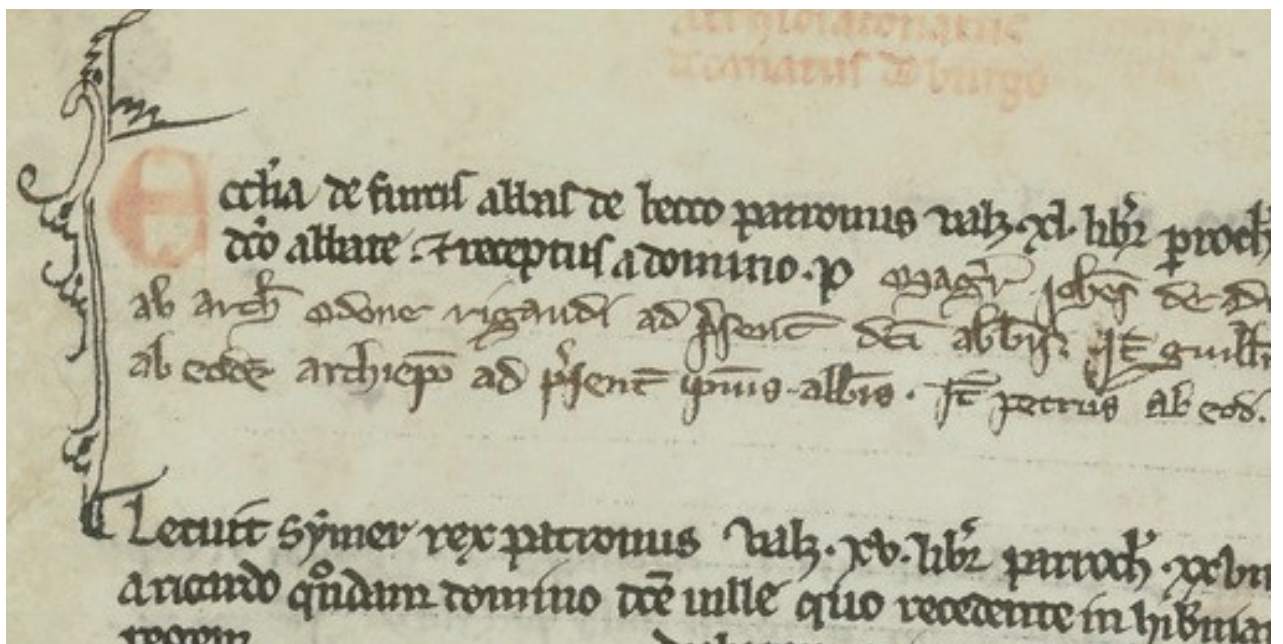 archidiaconatus
decanatus de burgo
Eccl'ia de furcis abbas de becco patronus valz .xl. libr' paroch'
dco abbate . et receptus a domino . P Magr' Joh'es de
ab arch' odone rigaudi ad p'sent' dci abb'is. It' guill'
ab eodē archiepo ad p'sent' abb'is . It' petrus ab eod.
Letuit symer rex patronus valz . xv. libr' parroch' .
a ricardo qondam domino dce ville quo recedente in hib'nia
regem